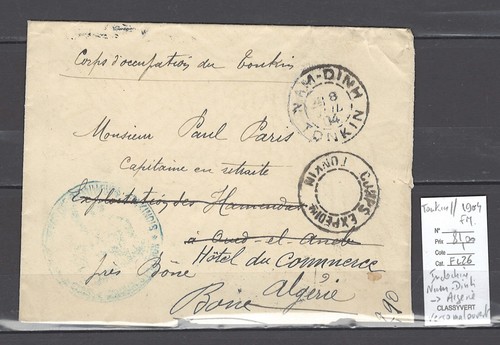 Corps d'occupation du Tonkin
NAM-DINH
8
04
TONKIN
Monsieur Paul Paris
Capitaine en retraite
CORPS EXPEDIRE TONKIN
Exploitation des Hamendas
à Oued-el-Aneb
Hôtel du Commerce
près Bône
Bône Algérie
Tonkin // 1904
FM
N°
Prix 81,00
Cote
Cat.
Indochine
Nam-Dinh
→ Algérie
CLASSYVERT
verso mal ouvert